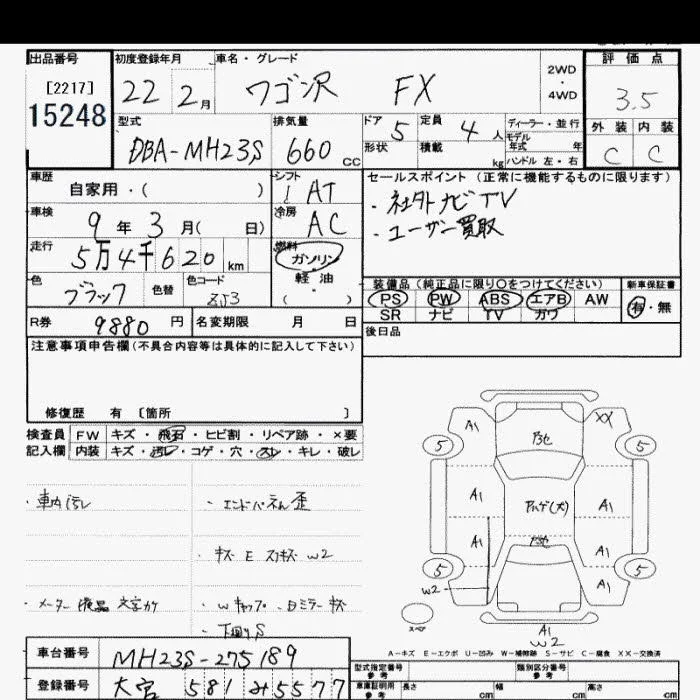 出品番号 初度登録年月 車名・グレード 評価点
[2217]
15248
22 2月 ワゴンR FX 2WD・4WD 3.5
型式 排気量 ドア 定員 ディーラー・並行 外装 内装
DBA-MH23S 660cc 5 4人 モデル年式 年 C C
形状 積載 kg ハンドル 左・右
車歴 シフト セールスポイント(正常に機能するものに限ります)
自家用・( ) AT ・社外ナビTV
車検 冷房 ・ユーザー買取
9年3月( 日) AC
走行 燃料
5万4千620km ガソリン
軽油
( )
色 色替 色コード 装備品(純正品に限り○をつけてください) 新車保証書
ブラック PS PW ABS エアB AW 有・無
SR ナビ TV カワ
R券 9880円 名変期限 月 日 後日品
注意事項申告欄(不具合内容等は具体的に記入して下さい)
修復歴 有 〔箇所 〕
検査員 FW キズ・飛石・ヒビ割・リペア跡・×要
記入欄 内装 キズ・汚レ・コゲ・穴・スレ・キレ・破レ
・車内汚レ ・エンドパネル歪
・キズ E スリキズ W2
・メーター液晶文字カケ
・下廻りS
A1 XX
5 5
A1 A1
A1 A1
5 5
W2 A1
スペア A1
W2
A-キズ E-エクボ U-凹み W-補修跡 S-サビ C-腐食 XX-交換済
車台番号 MH23S-275189 型式指定番号 参考 類別区分番号 参考
登録番号 大宮 581 み5577 車庫証明用 参考 長さ cm 幅 cm 高さ cm